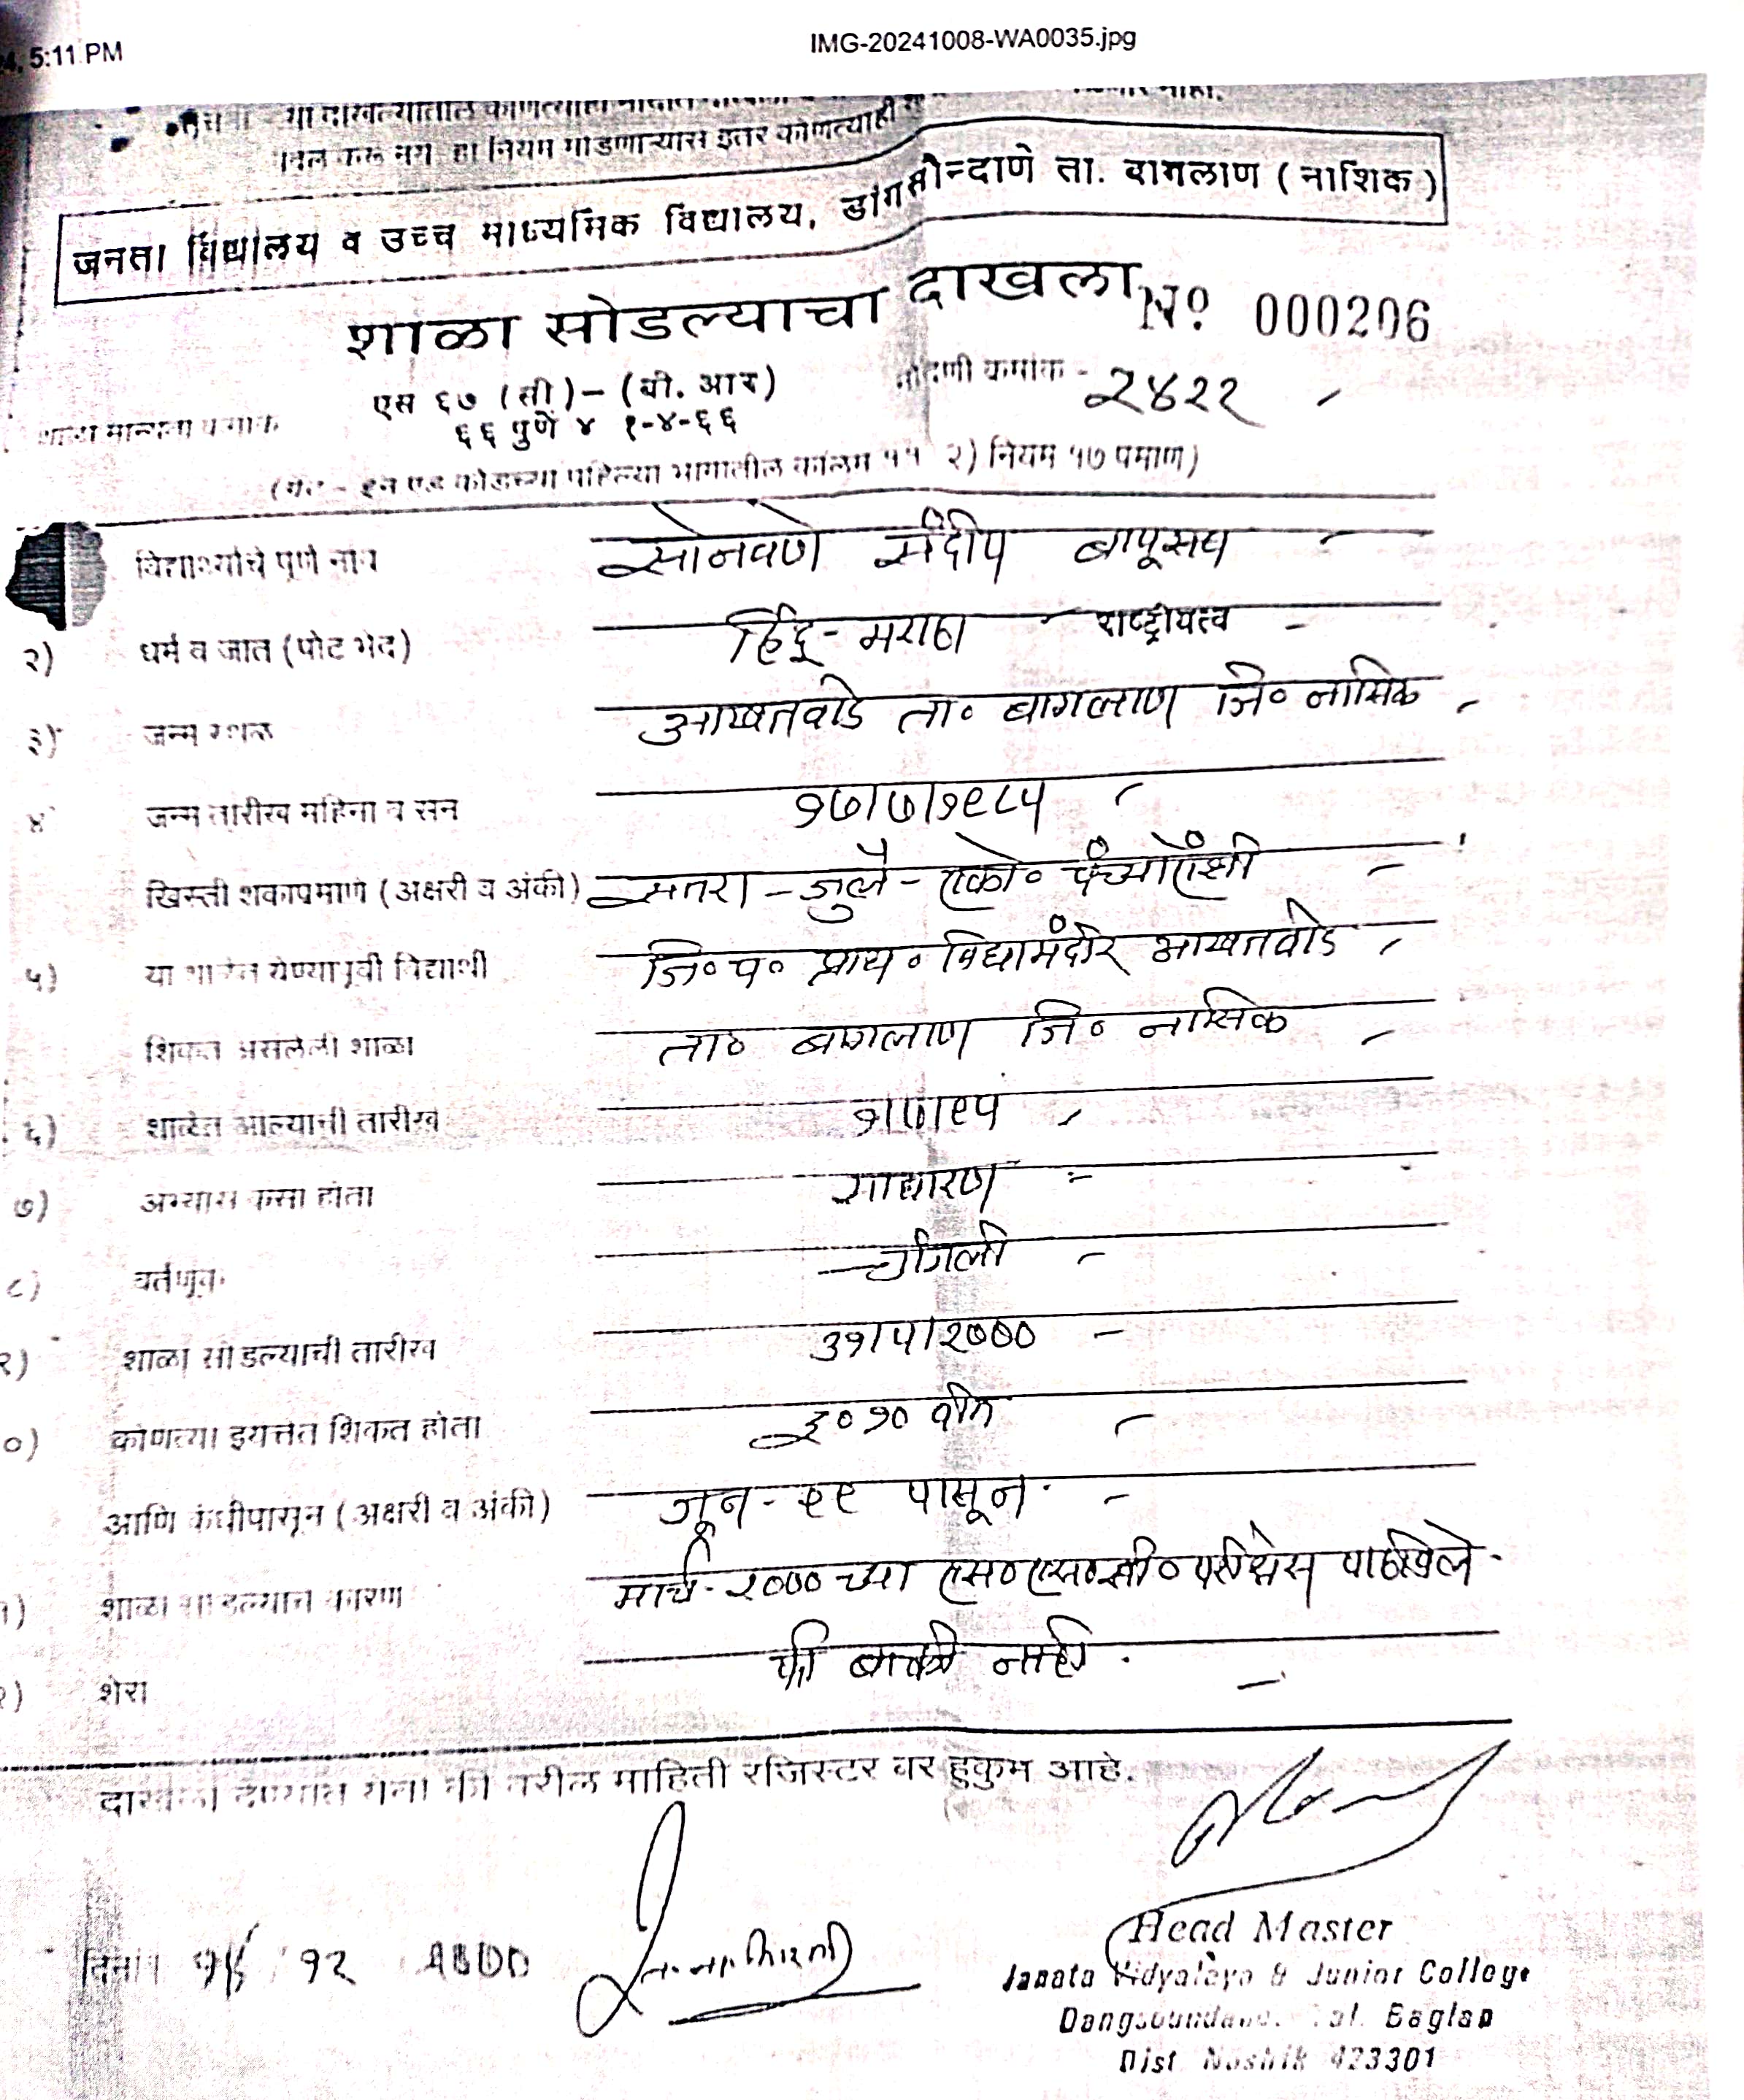 5:11 PM
IMG-20241008-WA0035.jpg
या दाखल्यातील
नियम मोडणाऱ्यास इतर कोणत्याही
जनता विद्यालय व उच्च माध्यमिक विद्यालय, डांगसौन्दाणे ता. बागलाण ( नाशिक )
शाळा सोडल्याचा दाखला Nº 000206
शाळा मान्यता क्रमांक एस ६७ (सी)-(बी. आर) नोंदणी क्रमांक - २४२२
६६ पुणें ४ १-४-६६
पहिल्या भागातील कॉलम १५ २) नियम १७ प्रमाणे)
विद्यार्थ्याचे पूर्ण नांव सोनवणे संदीप बापूराव
२) धर्म व जात (पोट भेद) हिंदू - मराठा राष्ट्रीयत्व -
३) जन्म स्थळ ता० बागलाण जि० नासिक
४ जन्म तारीख महिना व सन १७/७/१९८५
खिस्ती शकाप्रमाणे (अक्षरी व अंकी) सतरा - जुलै - एको० पंच्याऐंशी
५) या शाळेत येण्यापूर्वी विद्यार्थी जि० प० प्राथ० विद्यामंदीर
शिकत असलेली शाळा ता० बागलाण जि० नासिक
६) शाळेत आल्याची तारीख १/७/९५
७) अभ्यास कसा होता साधारण
८) वर्तणूक चांगली
९) शाळा सोडल्याची तारीख ३१/५/२०००
०) कोणत्या इयत्तेत शिकत होता इ० १० वीत
आणि कधीपासून (अक्षरी व अंकी) जून - ९९ पासून
१) शाळा सोडल्याचे कारण मार्च - २००० च्या एस० एस० सी० परीक्षेस पाठविले
२) शेरा फी बाकी नाही.
दाखला देण्यात येतो की वरील माहिती रजिस्टर बर हुकुम आहे.
दिनांक १२
Head Master
Janata Vidyalaya & Junior College
Dangsoundane. Tal. Baglan
Dist Nashik 423301